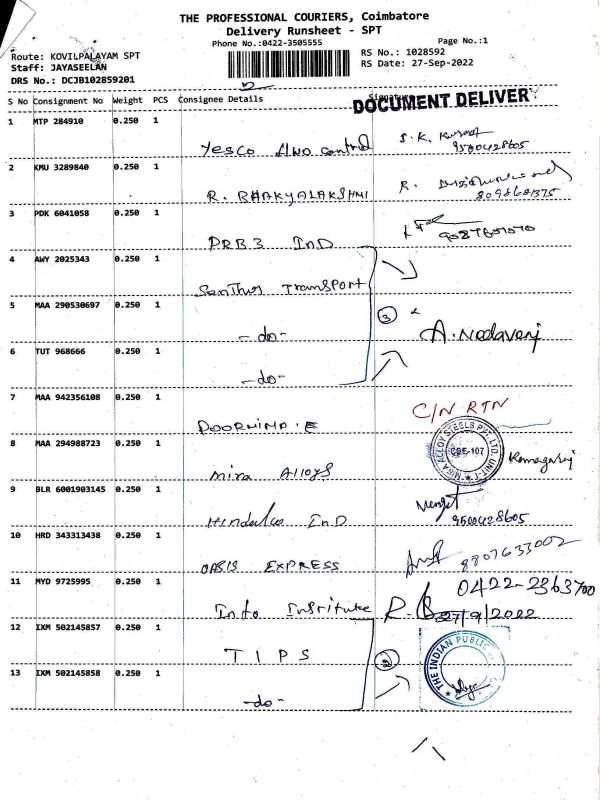 THE PROFESSIONAL COURIERS, Coimbatore
Delivery Runsheet - SPT
Phone No.:0422-3505555 Page No.:1
Route: KOVILPALAYAM SPT RS No.: 1028592
Staff: JAYASEELAN RS Date: 27-Sep-2022
DRS No.: DCJB102859201
S No Consignment No Weight PCS Consignee Details Signature
DOCUMENT DELIVERY
1 MTP 284910 0.250 1
Yesco Flwo control S.K. 9500428605
2 KMU 3289840 0.250 1
R. BHAKYALAKSHMI R. 8098681375
3 PDK 6041058 0.250 1
PRB3 IND
4 AWY 2025343 0.250 1
Santhus Transport
5 MAA 290530697 0.250 1
-do- 3
6 TUT 968666 0.250 1
-do-
7 MAA 942356108 0.250 1
C/N RTN
8 MAA 294988723 0.250 1
Mira Alloys MIRA ALLOY STEELS PVT. LTD. UNIT-1 CBE-107
9 BLR 6001903145 0.250 1
Hindalco InD 9500428605
10 HRD 343313438 0.250 1
OASIS EXPRESS 8807633002
11 MYD 9725995 0.250 1
0422-2363700
Info Institute 27/9/2022
12 IXM 502145857 0.250 1
TIPS THE INDIAN PUBLIC
13 IXM 502145858 0.250 1
-do-